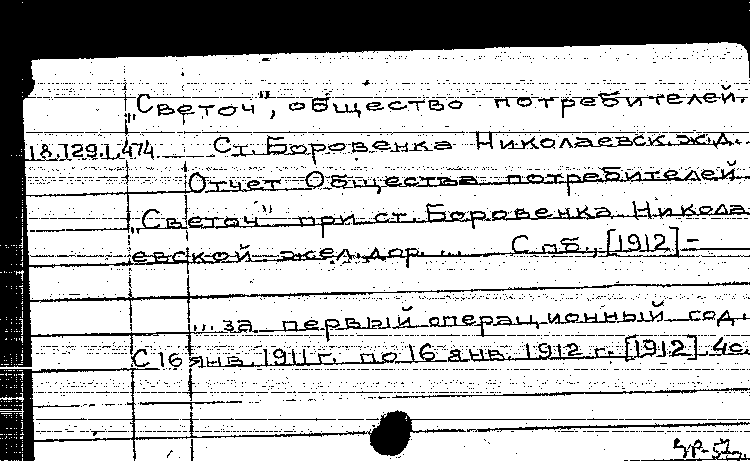 „Светоч", общество потребителей.
18.129.1.474 Ст. Боровенка Николаевск.ж.д.
Отчет Общества потребителей
„Светоч" при ст. Боровенка Никола
евской жел.дор. ... Спб., [1912]-
... за первый операционный год.
С 16 янв. 1911 г. по 16 янв. 1912 г. [1912] 4с.